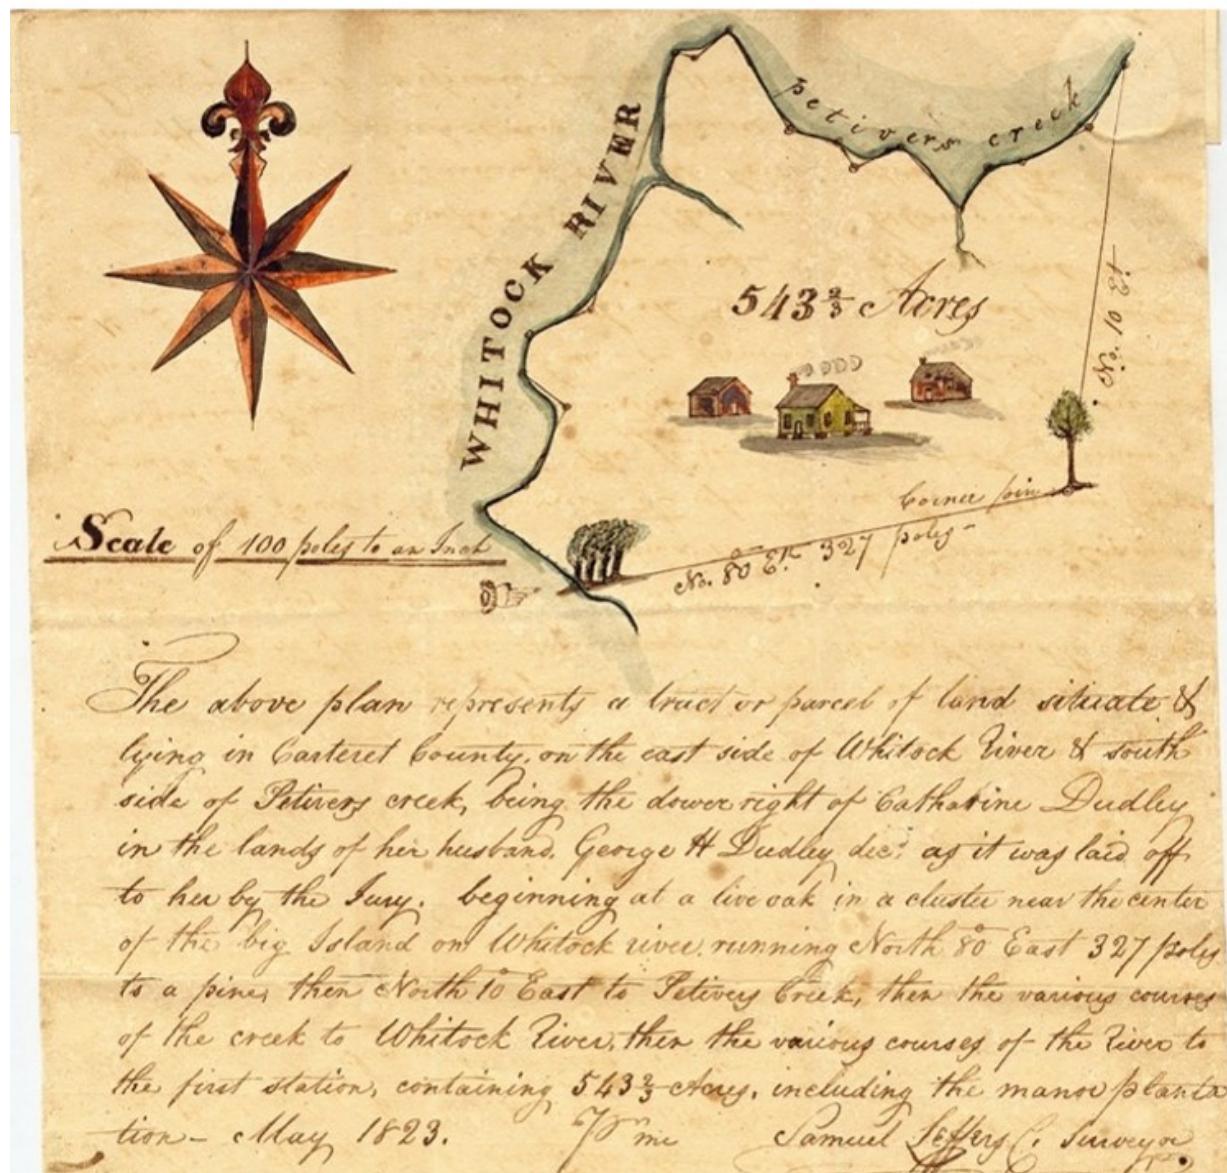 WHITOCK RIVER
petivers creek
543 2/3 Acres
No. 10 Et.
Corner pine
No. 80° Et. 327 poles -
Scale of 100 poles to an Inch
The above plan represents a tract or parcel of land situate &
lying in Carteret County, on the east side of Whitock River & south
side of Petivers creek, being the dower right of Catharine Dudley
in the lands of her husband, George H Dudley decd. as it was laid off
to her by the Jury. beginning at a live oak in a cluster near the center
of the big Island on Whitock river running North 80° East 327 poles
to a pine, then North 10° East to Petivers Creek, then the various courses
of the creek to Whitock River, then the various courses of the River to
the first station, containing 543 2/3 Acres, including the manor planta
tion - May 1823. Pr me Samuel Leffers C. Surveyor